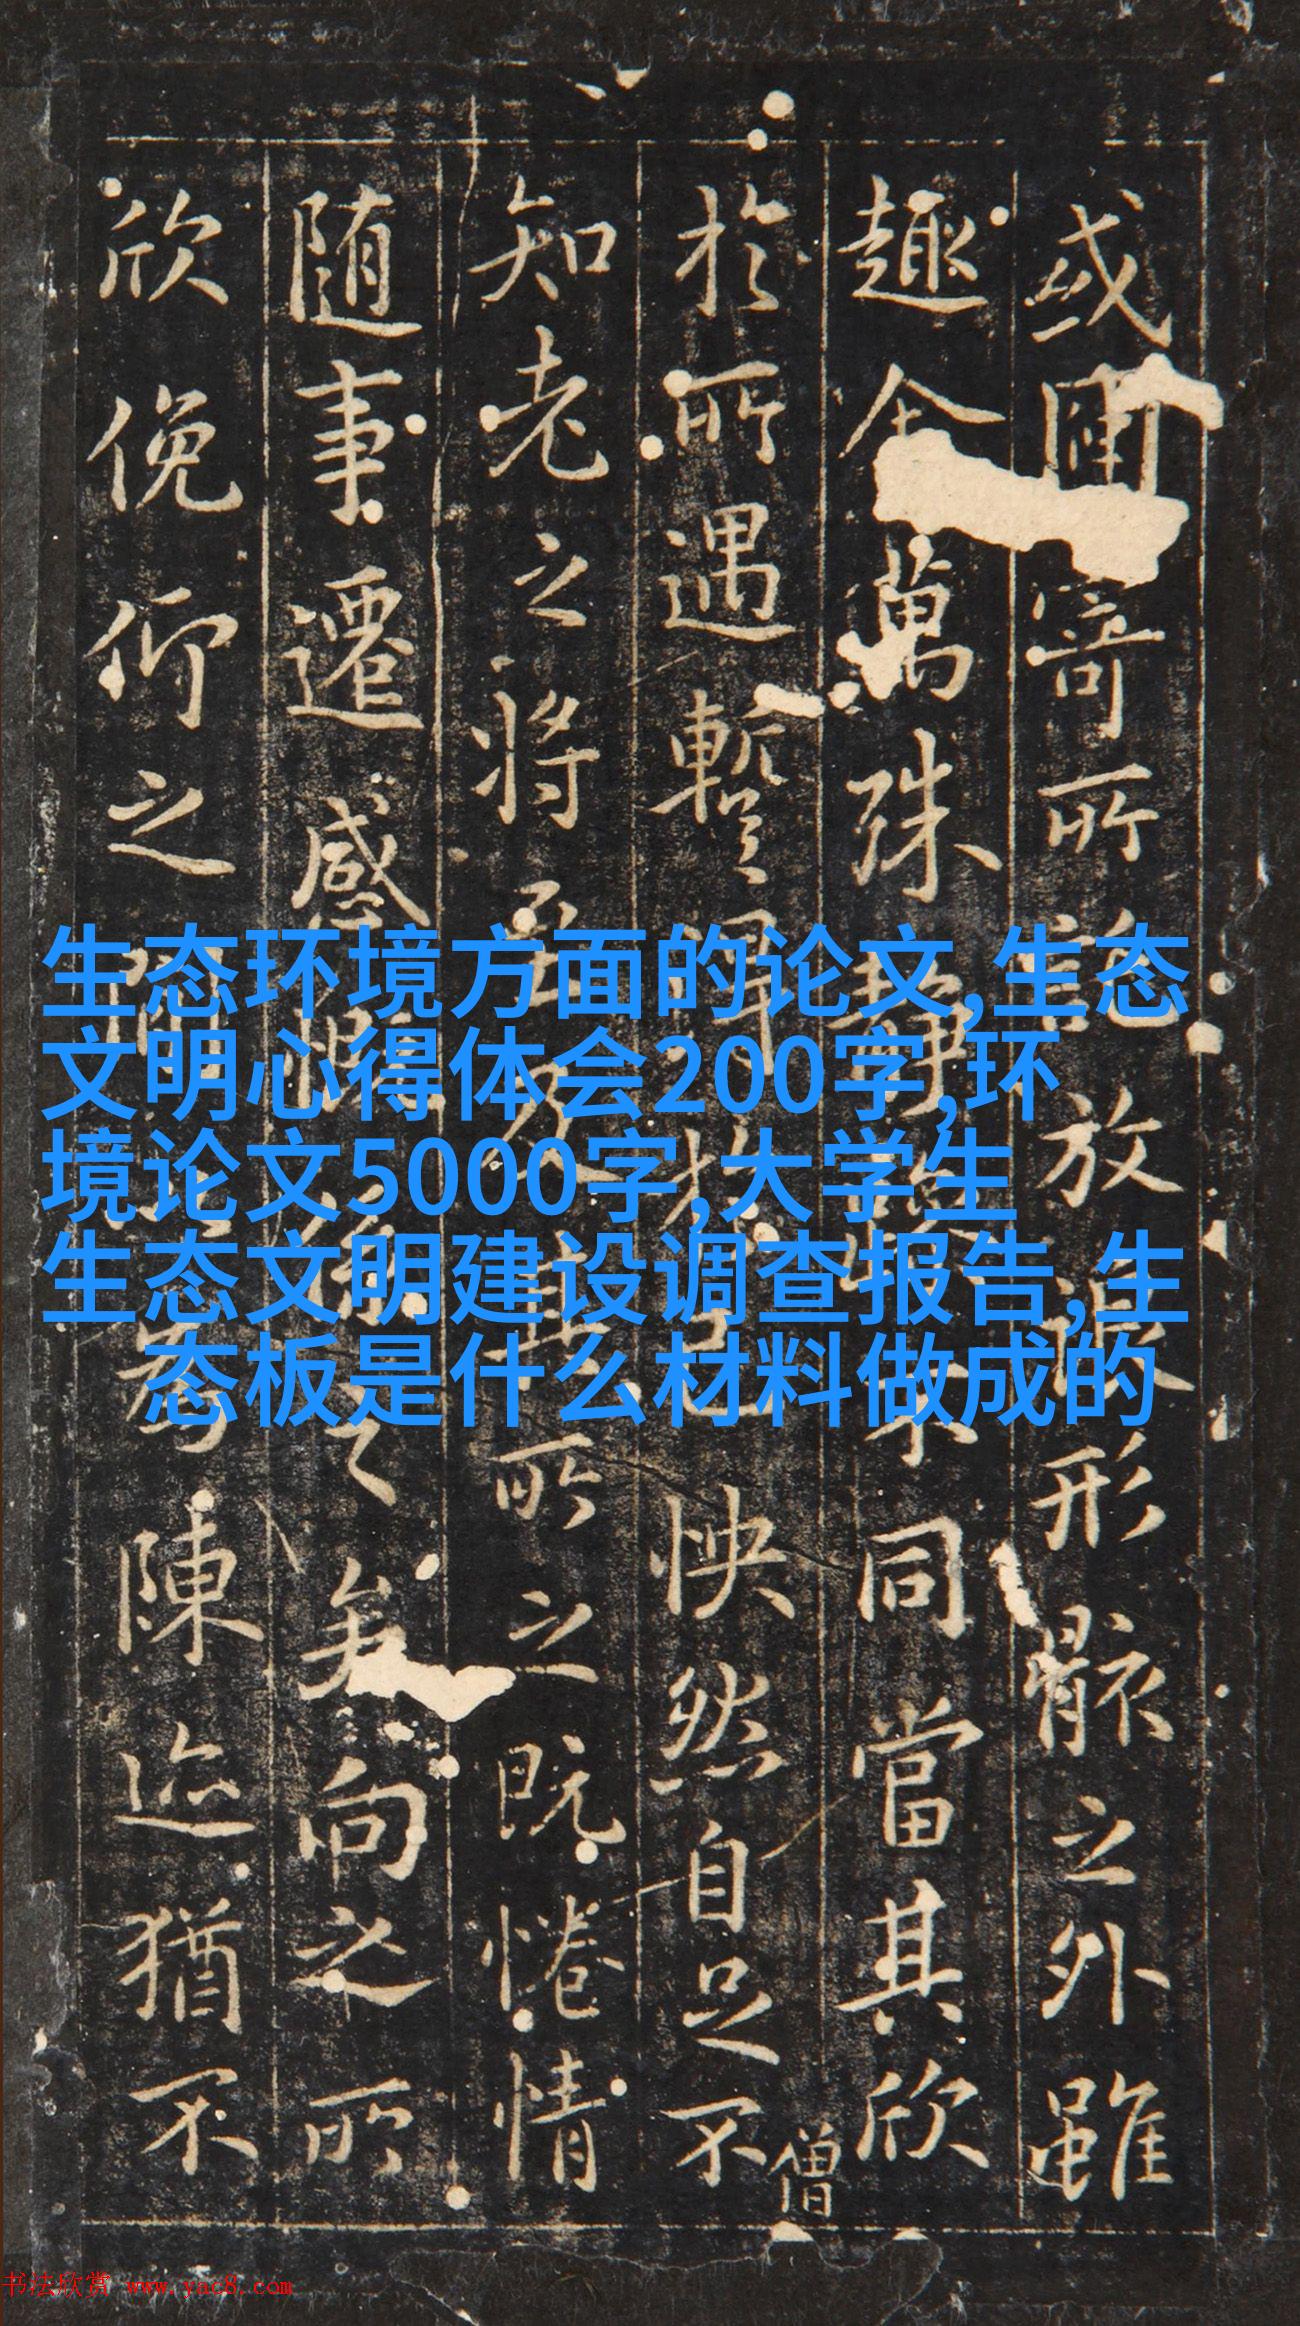 或因寄所託放浪形骸之外雖
趣舍萬殊靜躁不同當其欣
於所遇暫得於己怏然自足不
僧
知老之將至及其所之既惓情
随事遷感慨係之矣向之所
欣俛仰之間以為陳迹猶不
生态环境方面的论文,生态
文明心得体会200字,环
境论文5000字,大学生
生态文明建设调查报告,生
态板是什么材料做成的
书法欣赏 www.yac8.com